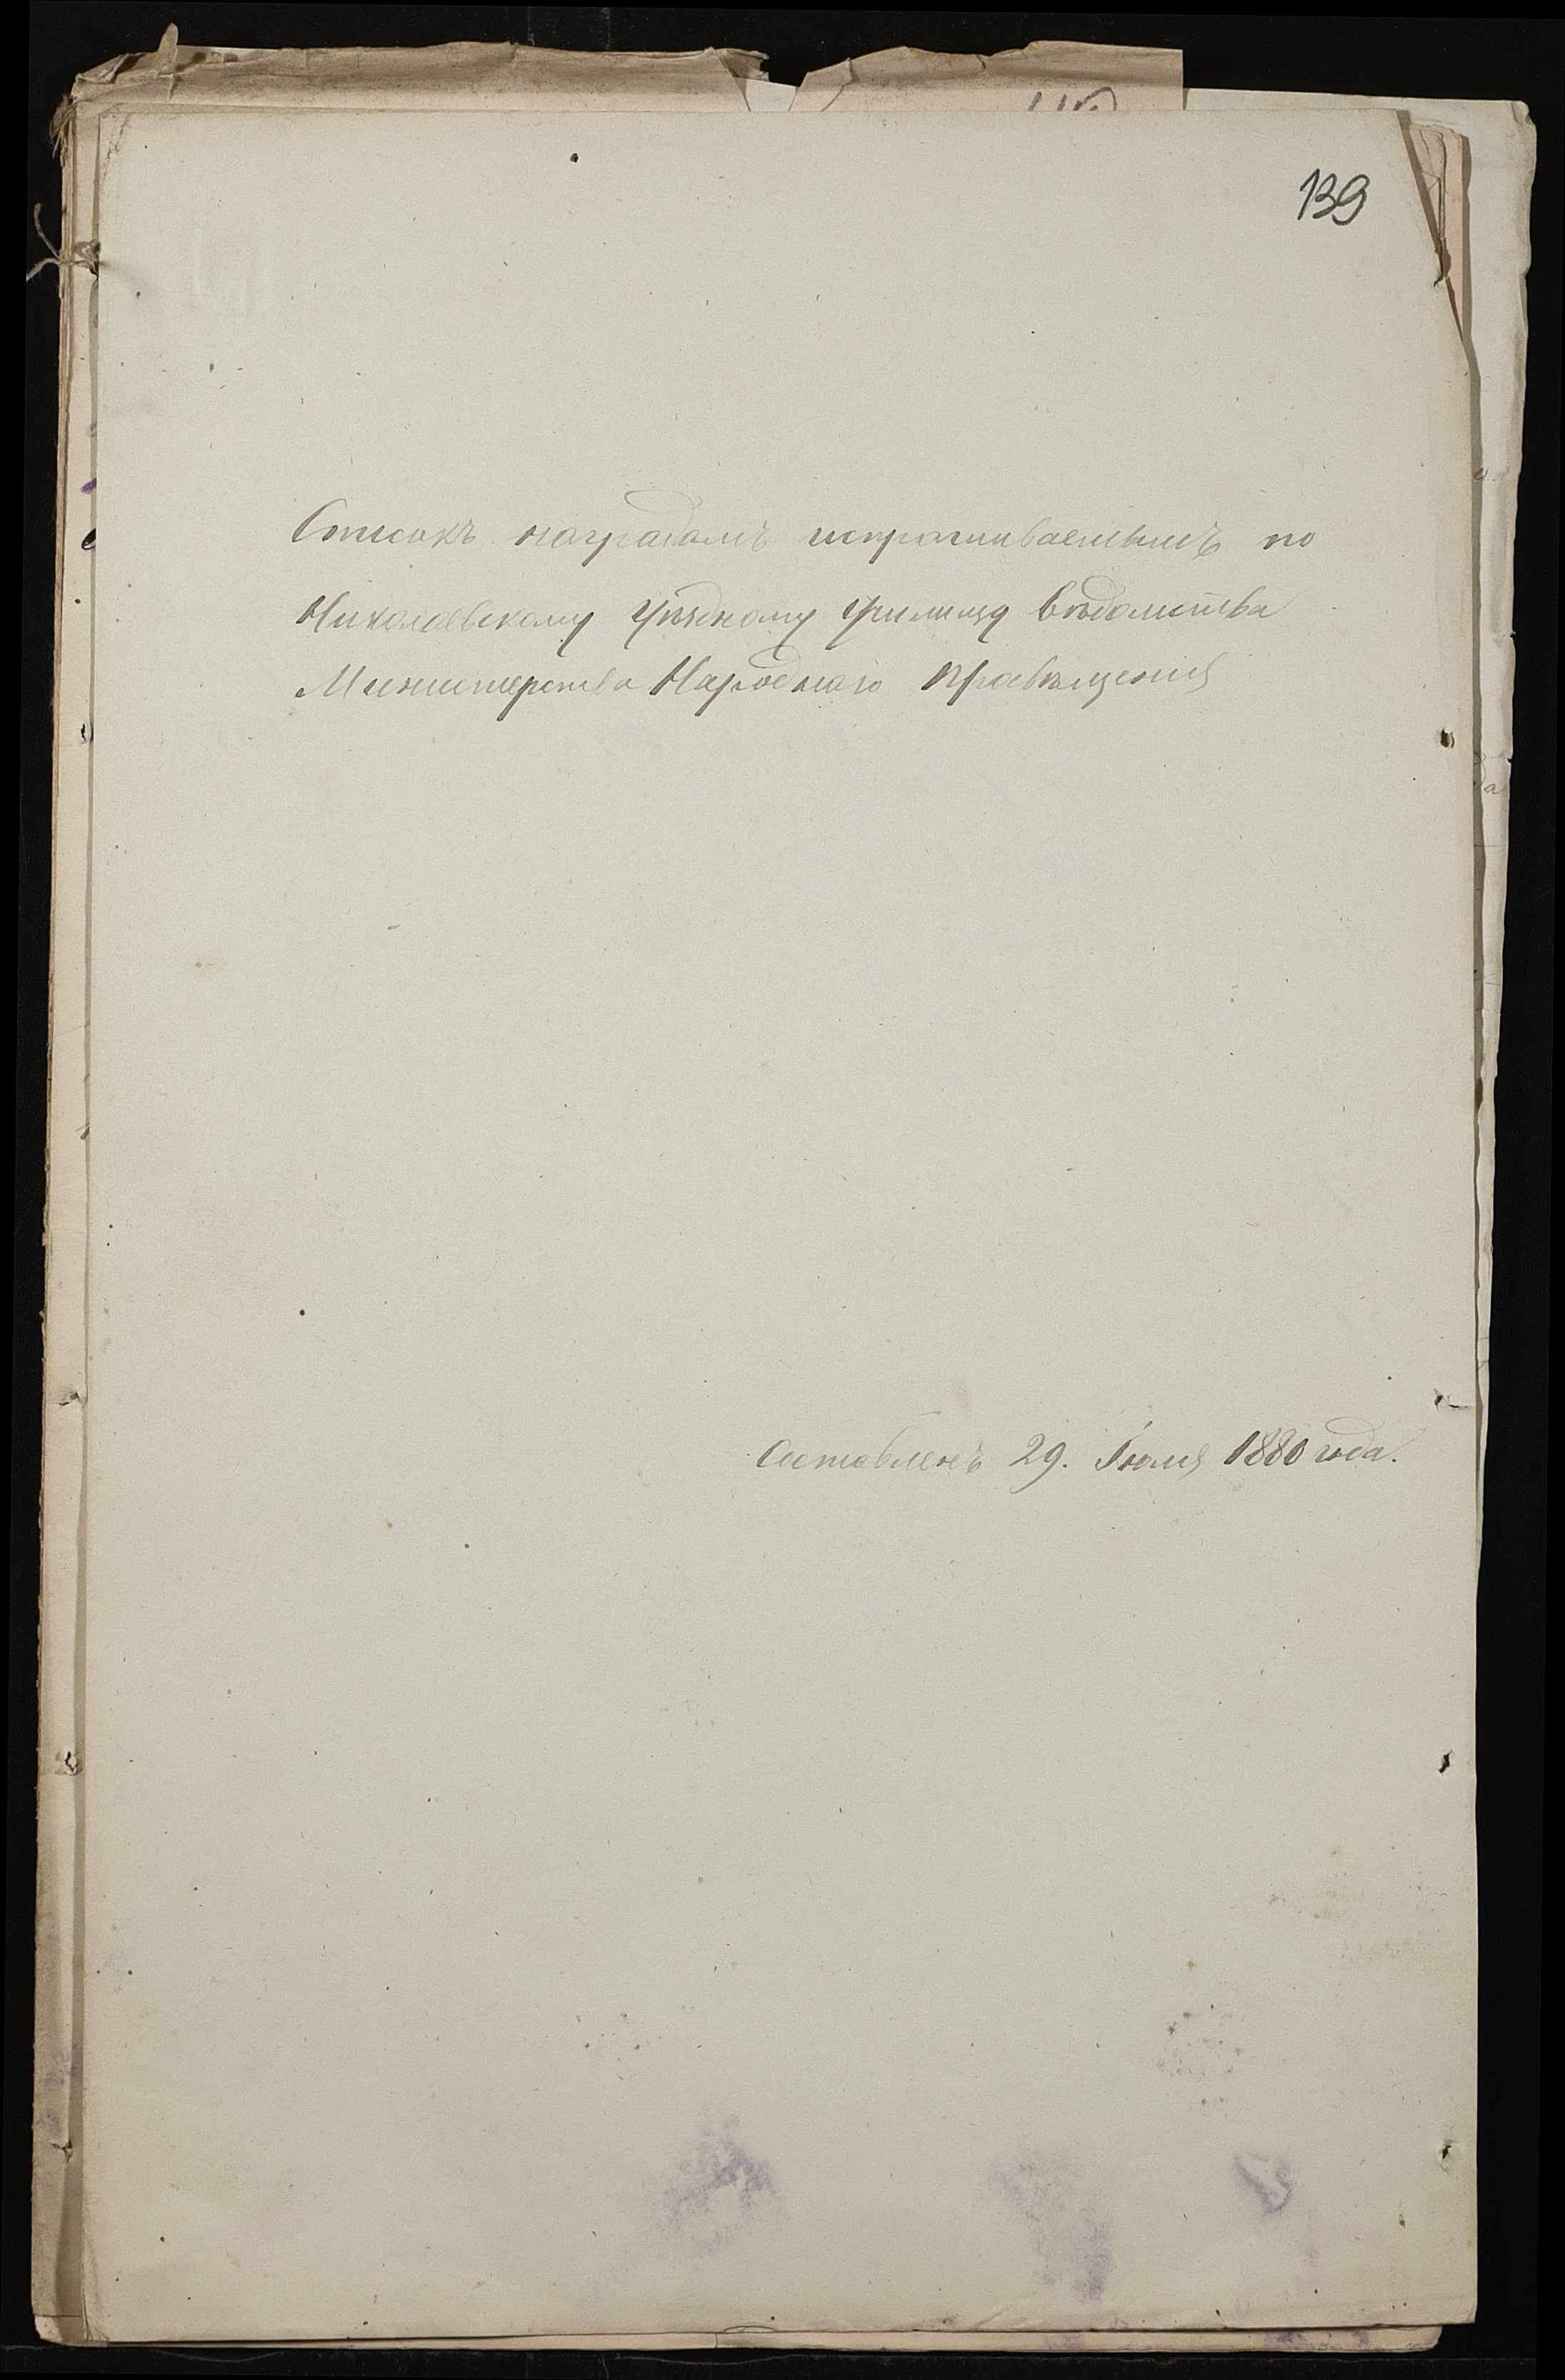 139
Списокъ наградамъ испрашиваемымъ по
Николаевскому Уѣздному Училищу вѣдомства
Министерства Народнаго Просвѣщенія
Составленъ 29. Іюля 1880 года.